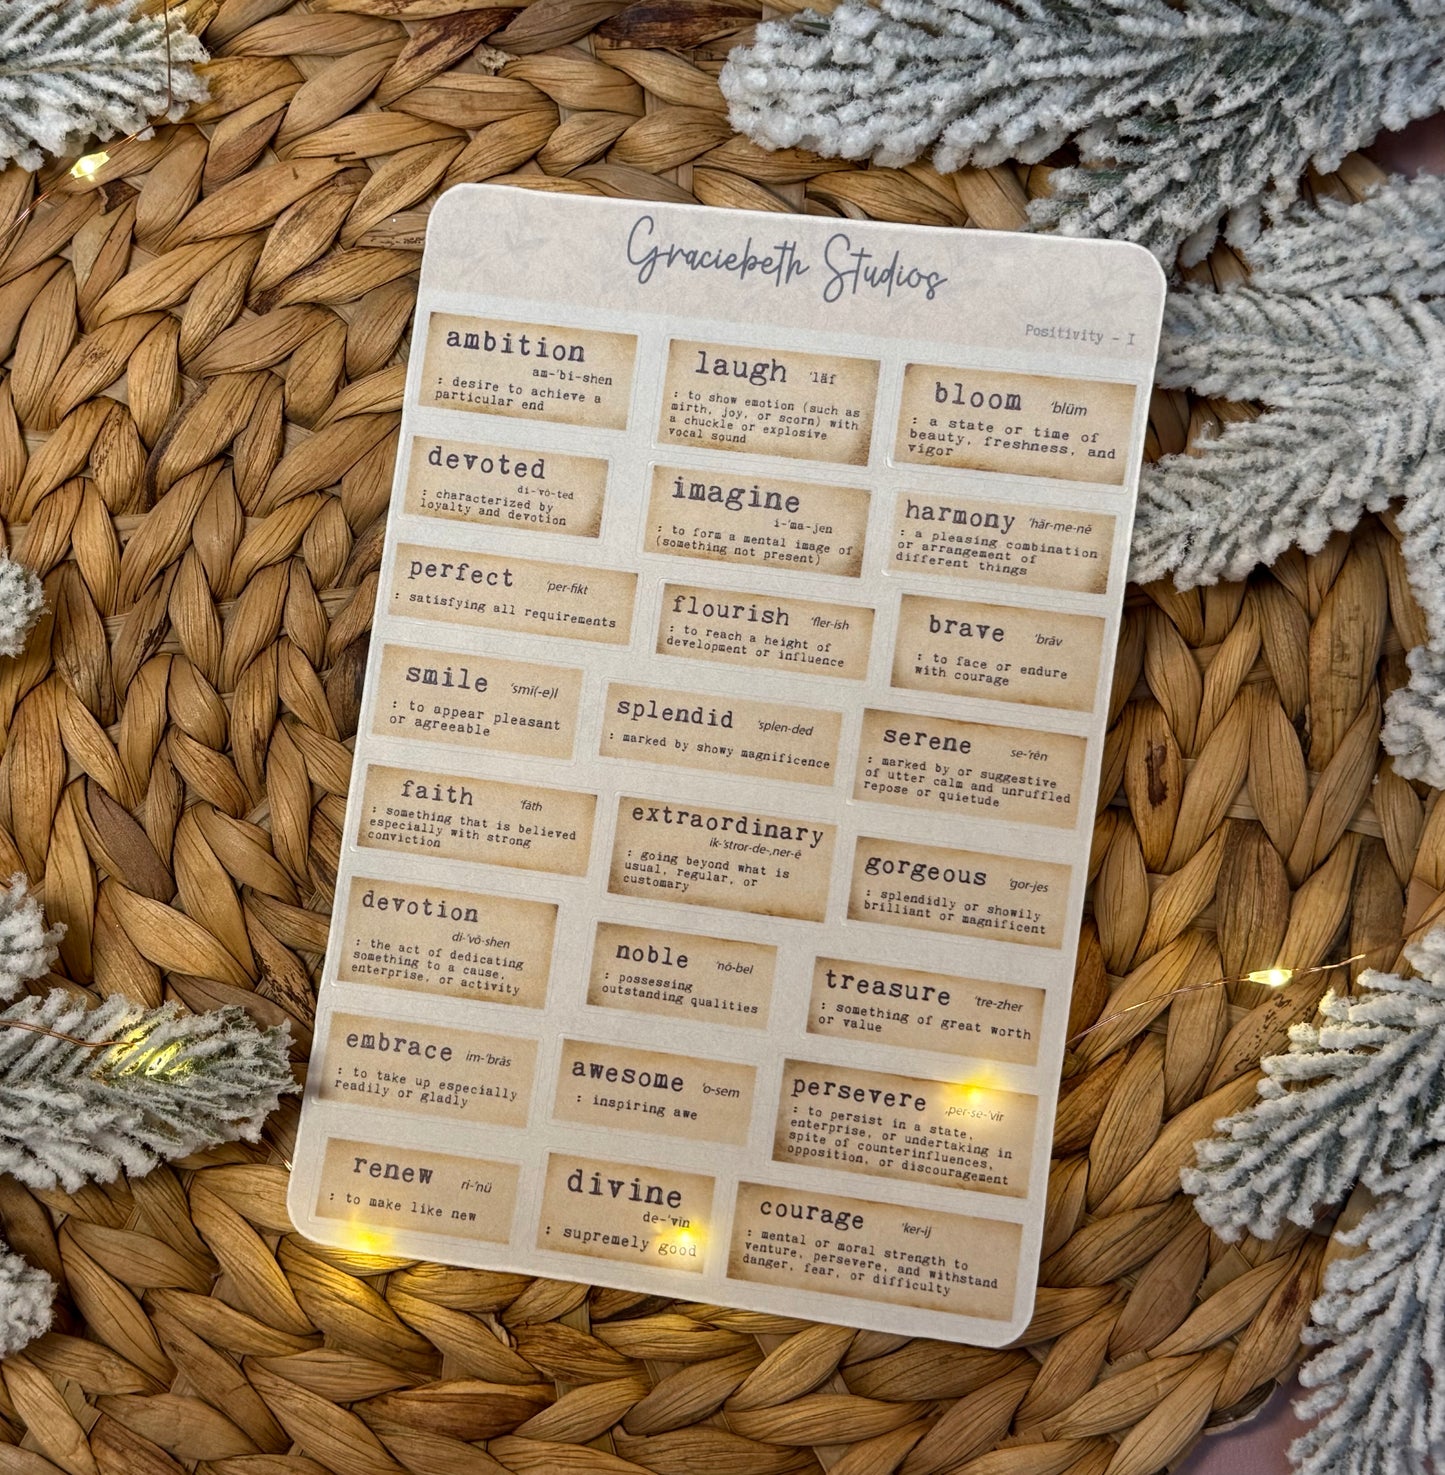 Graciebeth Studios
Positivity - I
ambition
am-'bi-shen
: desire to achieve a
particular end
laugh 'läf
: to show emotion (such as
mirth, joy, or scorn) with
a chuckle or explosive
vocal sound
bloom 'blüm
: a state or time of
beauty, freshness, and
vigor
devoted
di-'vō-ted
: characterized by
loyalty and devotion
imagine
i-'ma-jen
: to form a mental image of
(something not present)
harmony 'här-me-nē
: a pleasing combination
or arrangement of
different things
perfect 'per-fikt
: satisfying all requirements
flourish 'fler-ish
: to reach a height of
development or influence
brave 'brāv
: to face or endure
with courage
smile 'smī(-e)l
: to appear pleasant
or agreeable
splendid 'splen-ded
: marked by showy magnificence
serene se-'rēn
: marked by or suggestive
of utter calm and unruffled
repose or quietude
faith 'fāth
: something that is believed
especially with strong
conviction
extraordinary
ik-'stror-de-,ner-ē
: going beyond what is
usual, regular, or
customary
gorgeous 'gor-jes
: splendidly or showily
brilliant or magnificent
devotion
di-'vō-shen
: the act of dedicating
something to a cause,
enterprise, or activity
noble 'nō-bel
: possessing
outstanding qualities
treasure 'tre-zher
: something of great worth
or value
embrace im-'brās
: to take up especially
readily or gladly
awesome 'o-sem
: inspiring awe
persevere ,per-se-'vir
: to persist in a state,
enterprise, or undertaking in
spite of counterinfluences,
opposition, or discouragement
renew ri-'nü
: to make like new
divine
de-'vīn
: supremely good
courage 'ker-ij
: mental or moral strength to
venture, persevere, and withstand
danger, fear, or difficulty